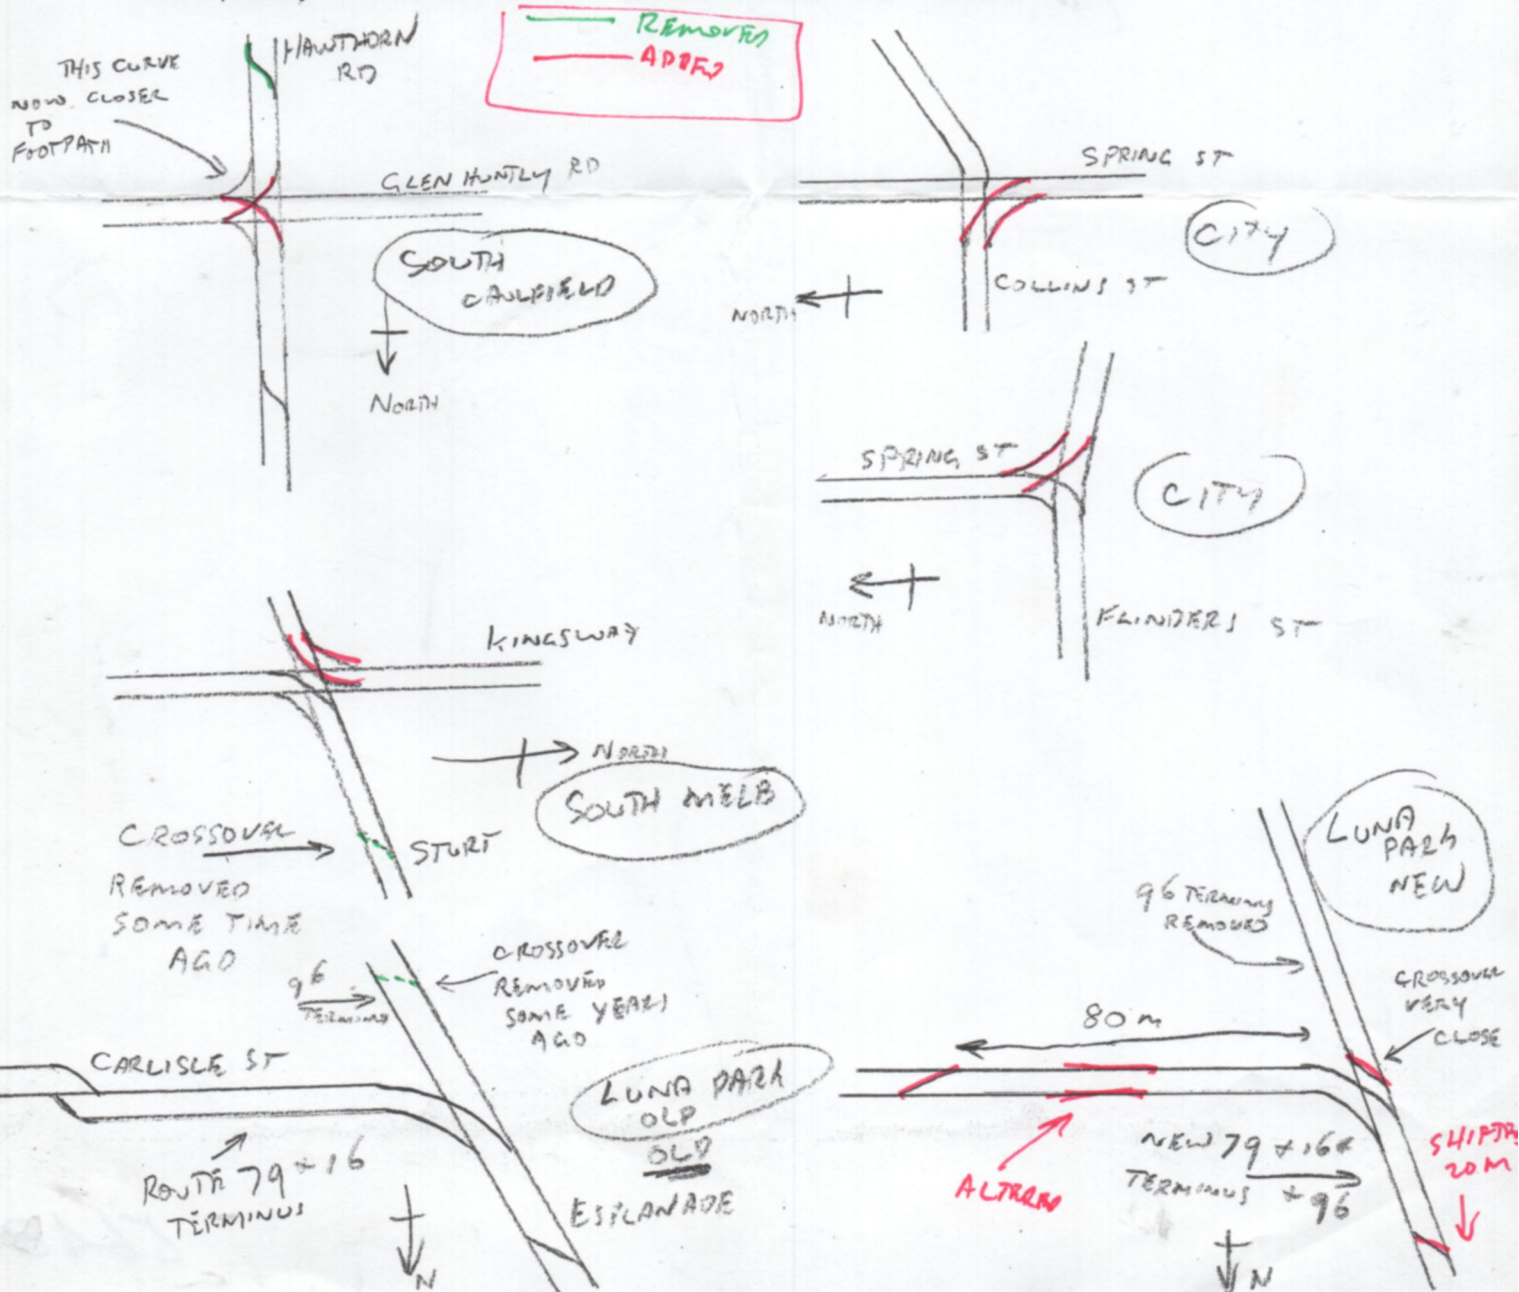 REMOVED
ADDED
HAWTHORN
RD
THIS CURVE
NOW CLOSER
TO
FOOTPATH
GLEN HUNTLY RD
SOUTH
CAULFIELD
NORTH
SPRING ST
CITY
COLLINS ST
NORTH
SPRING ST
CITY
NORTH
FLINDERS ST
KINGSWAY
NORTH
SOUTH MELB
CROSSOVER
REMOVED
SOME TIME
AGO
STURT
96
TERMINUS
CROSSOVER
REMOVED
SOME YEARS
AGO
CARLISLE ST
LUNA PARK
OLD
OLD
ROUTE 79 + 16
TERMINUS
ESPLANADE
N
LUNA
PARK
NEW
96 TERMINUS
REMOVED
CROSSOVER
VERY
CLOSE
80 m
ALTERED
NEW 79 + 16
TERMINUS + 96
SHIFTED
20M
N